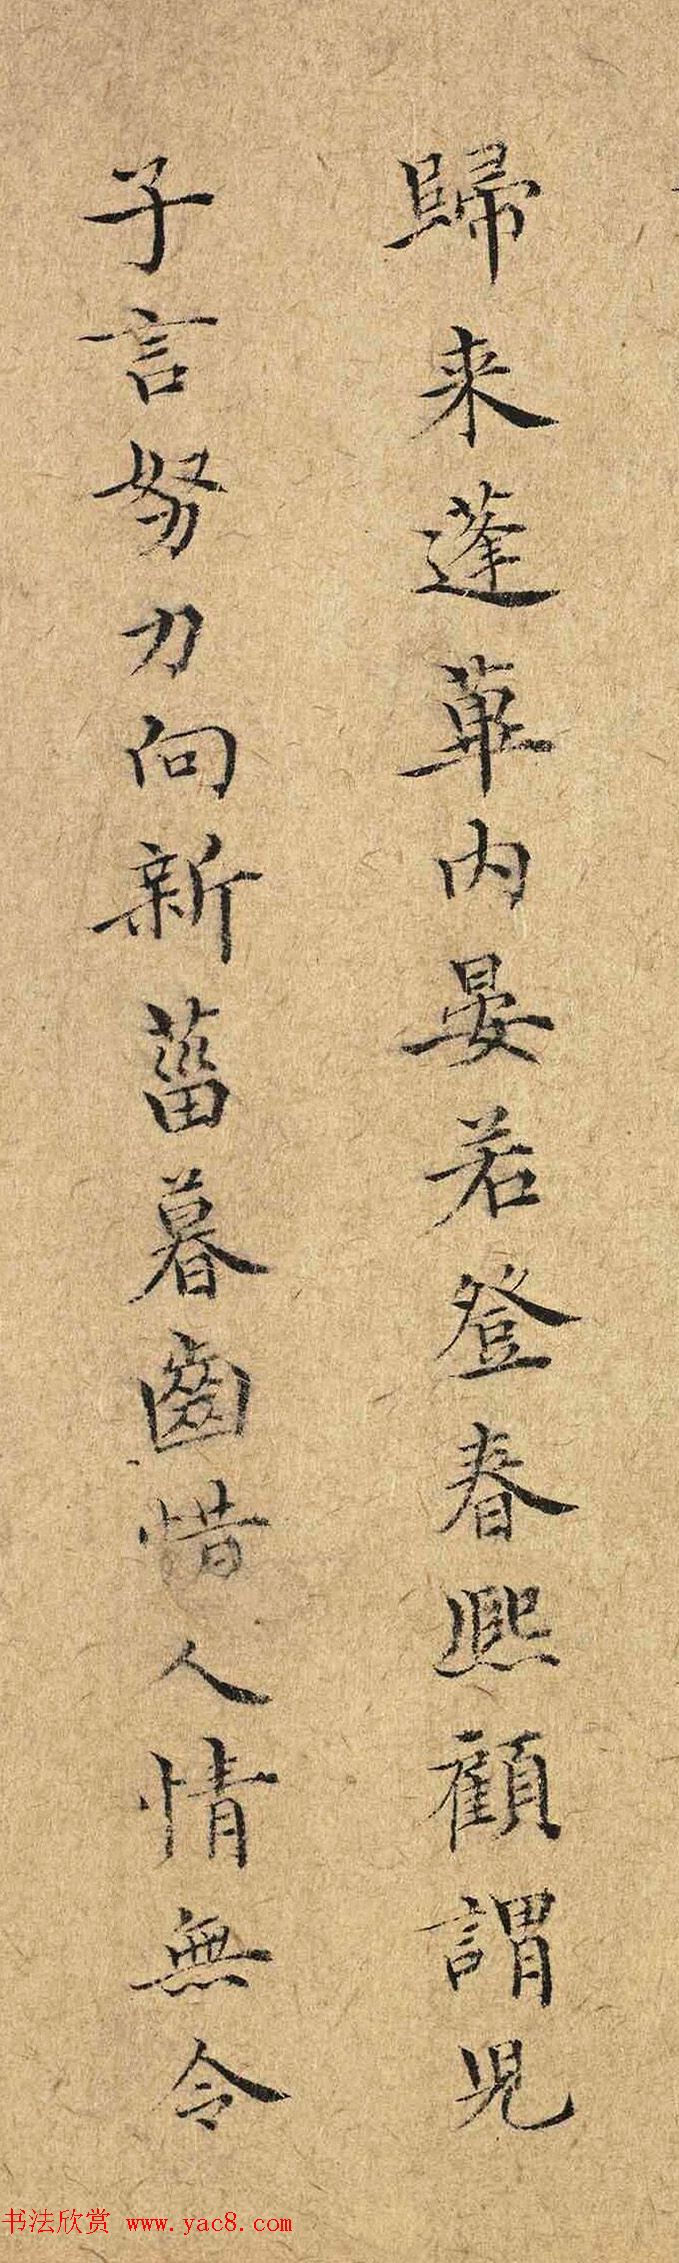 歸来蓬蓽内晏若登春熙顧謂兒
子言努力向新菑暮齒惜人情無令
书法欣赏 www.yac8.com